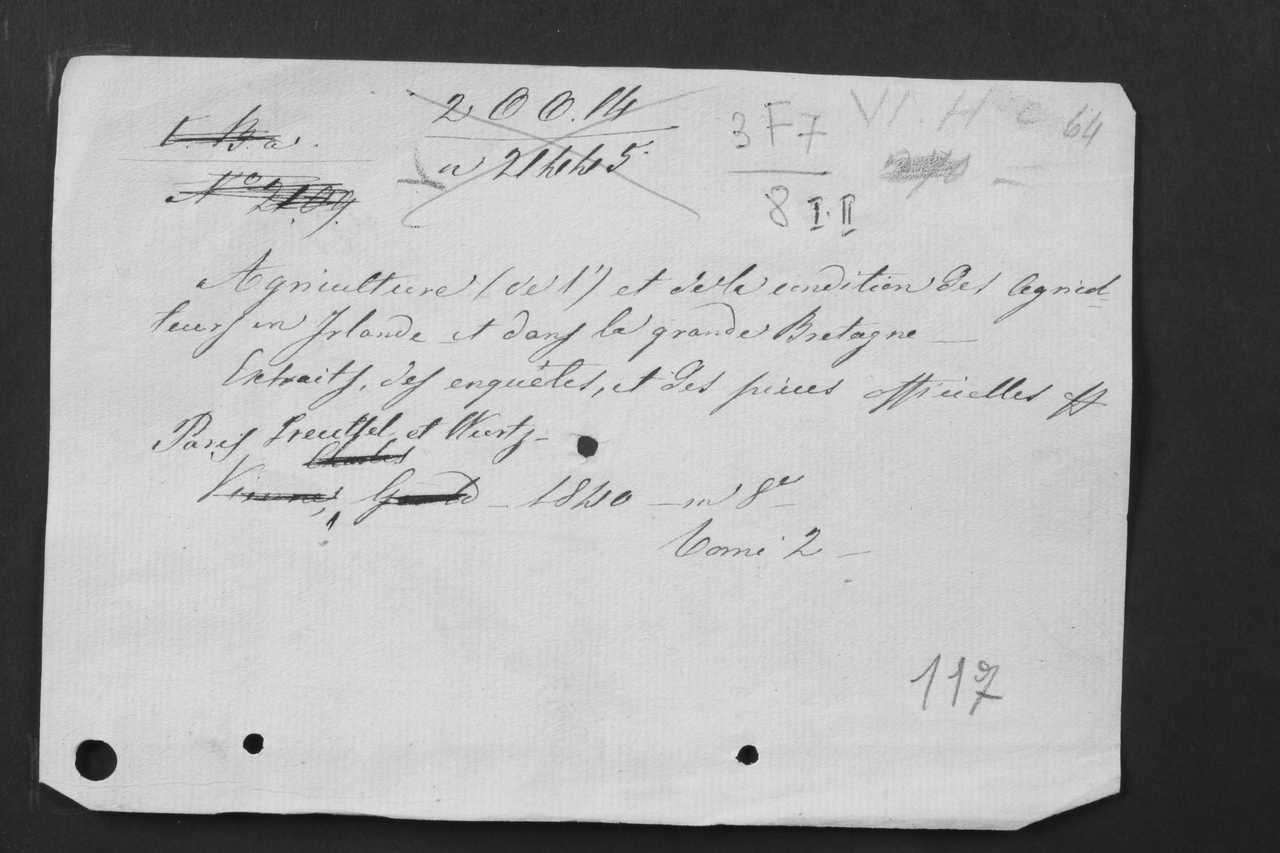 V. B. a. 2 O O. 14 3 F 7 VI. H c 64
No 2109. a 21445 8 I. II
Agriculture (de l') et de la condition des Agricul-
teurs en Irlande et dans la grande Bretagne —
Extraits, des enquêtes, et des pièces officielles
Paris Treuttel et Wurtz —
Charles
Vienne, Gerold — 1840 — in 8º —
Tome 2 —
117